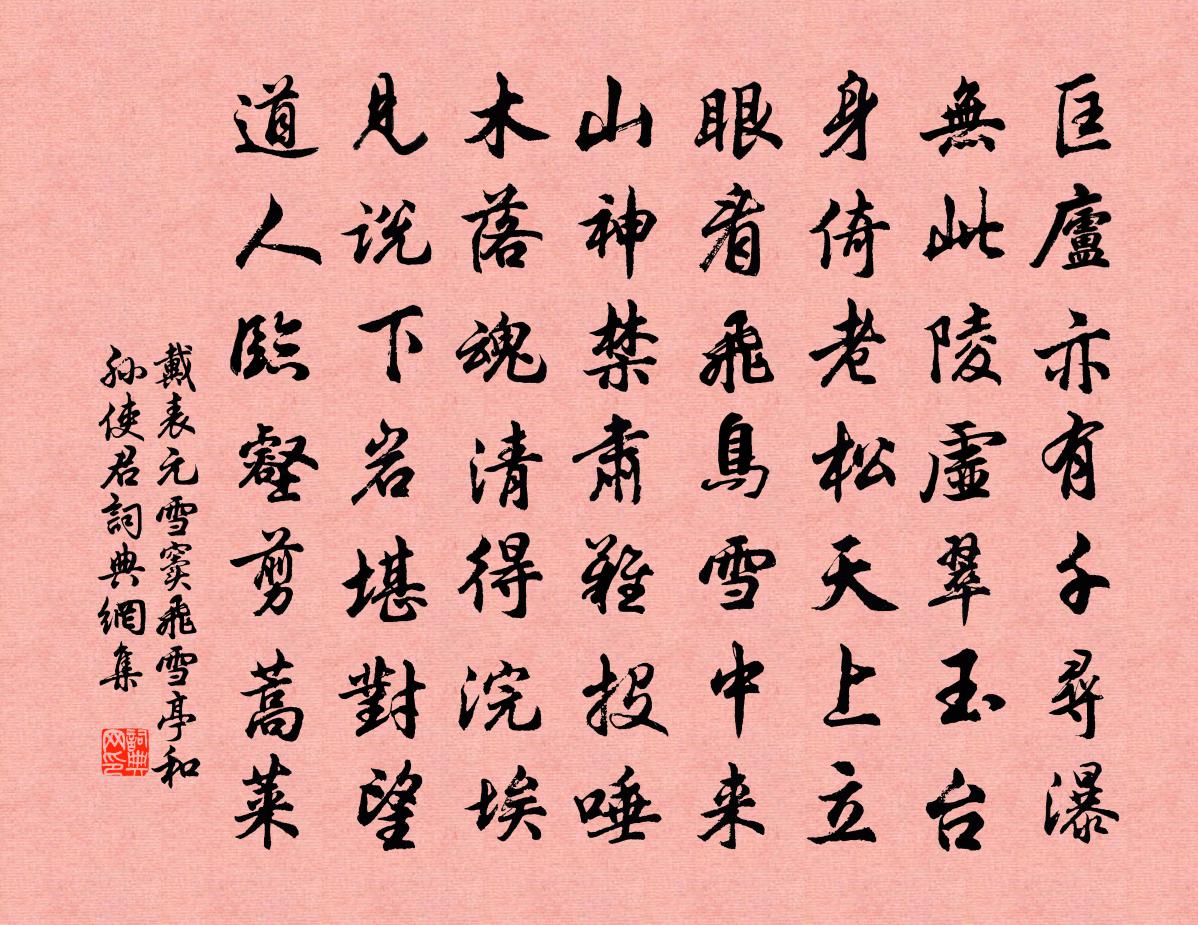 匡廬亦有千尋瀑
無此陵虛翠玉台
身倚老松天上立
眼看飛鳥雪中来
山神禁肅難投唾
木落魂清得浣埃
見说下岩堪對望
道人臨壑剪蒿莱
戴表元雪竇飛雪亭和
孙使君詞典網集
詞典
网印